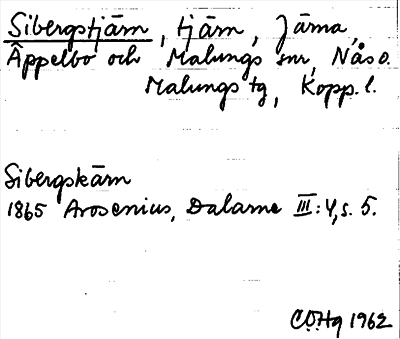 Sibergstjärn, tjärn, Järna,
Äppelbo och Malungs snr, Nås o.
Malungs tg, Kopp. l.
Sibergskärn
1865 Arosenius, Dalarne III:4, s. 5.
COHg 1962